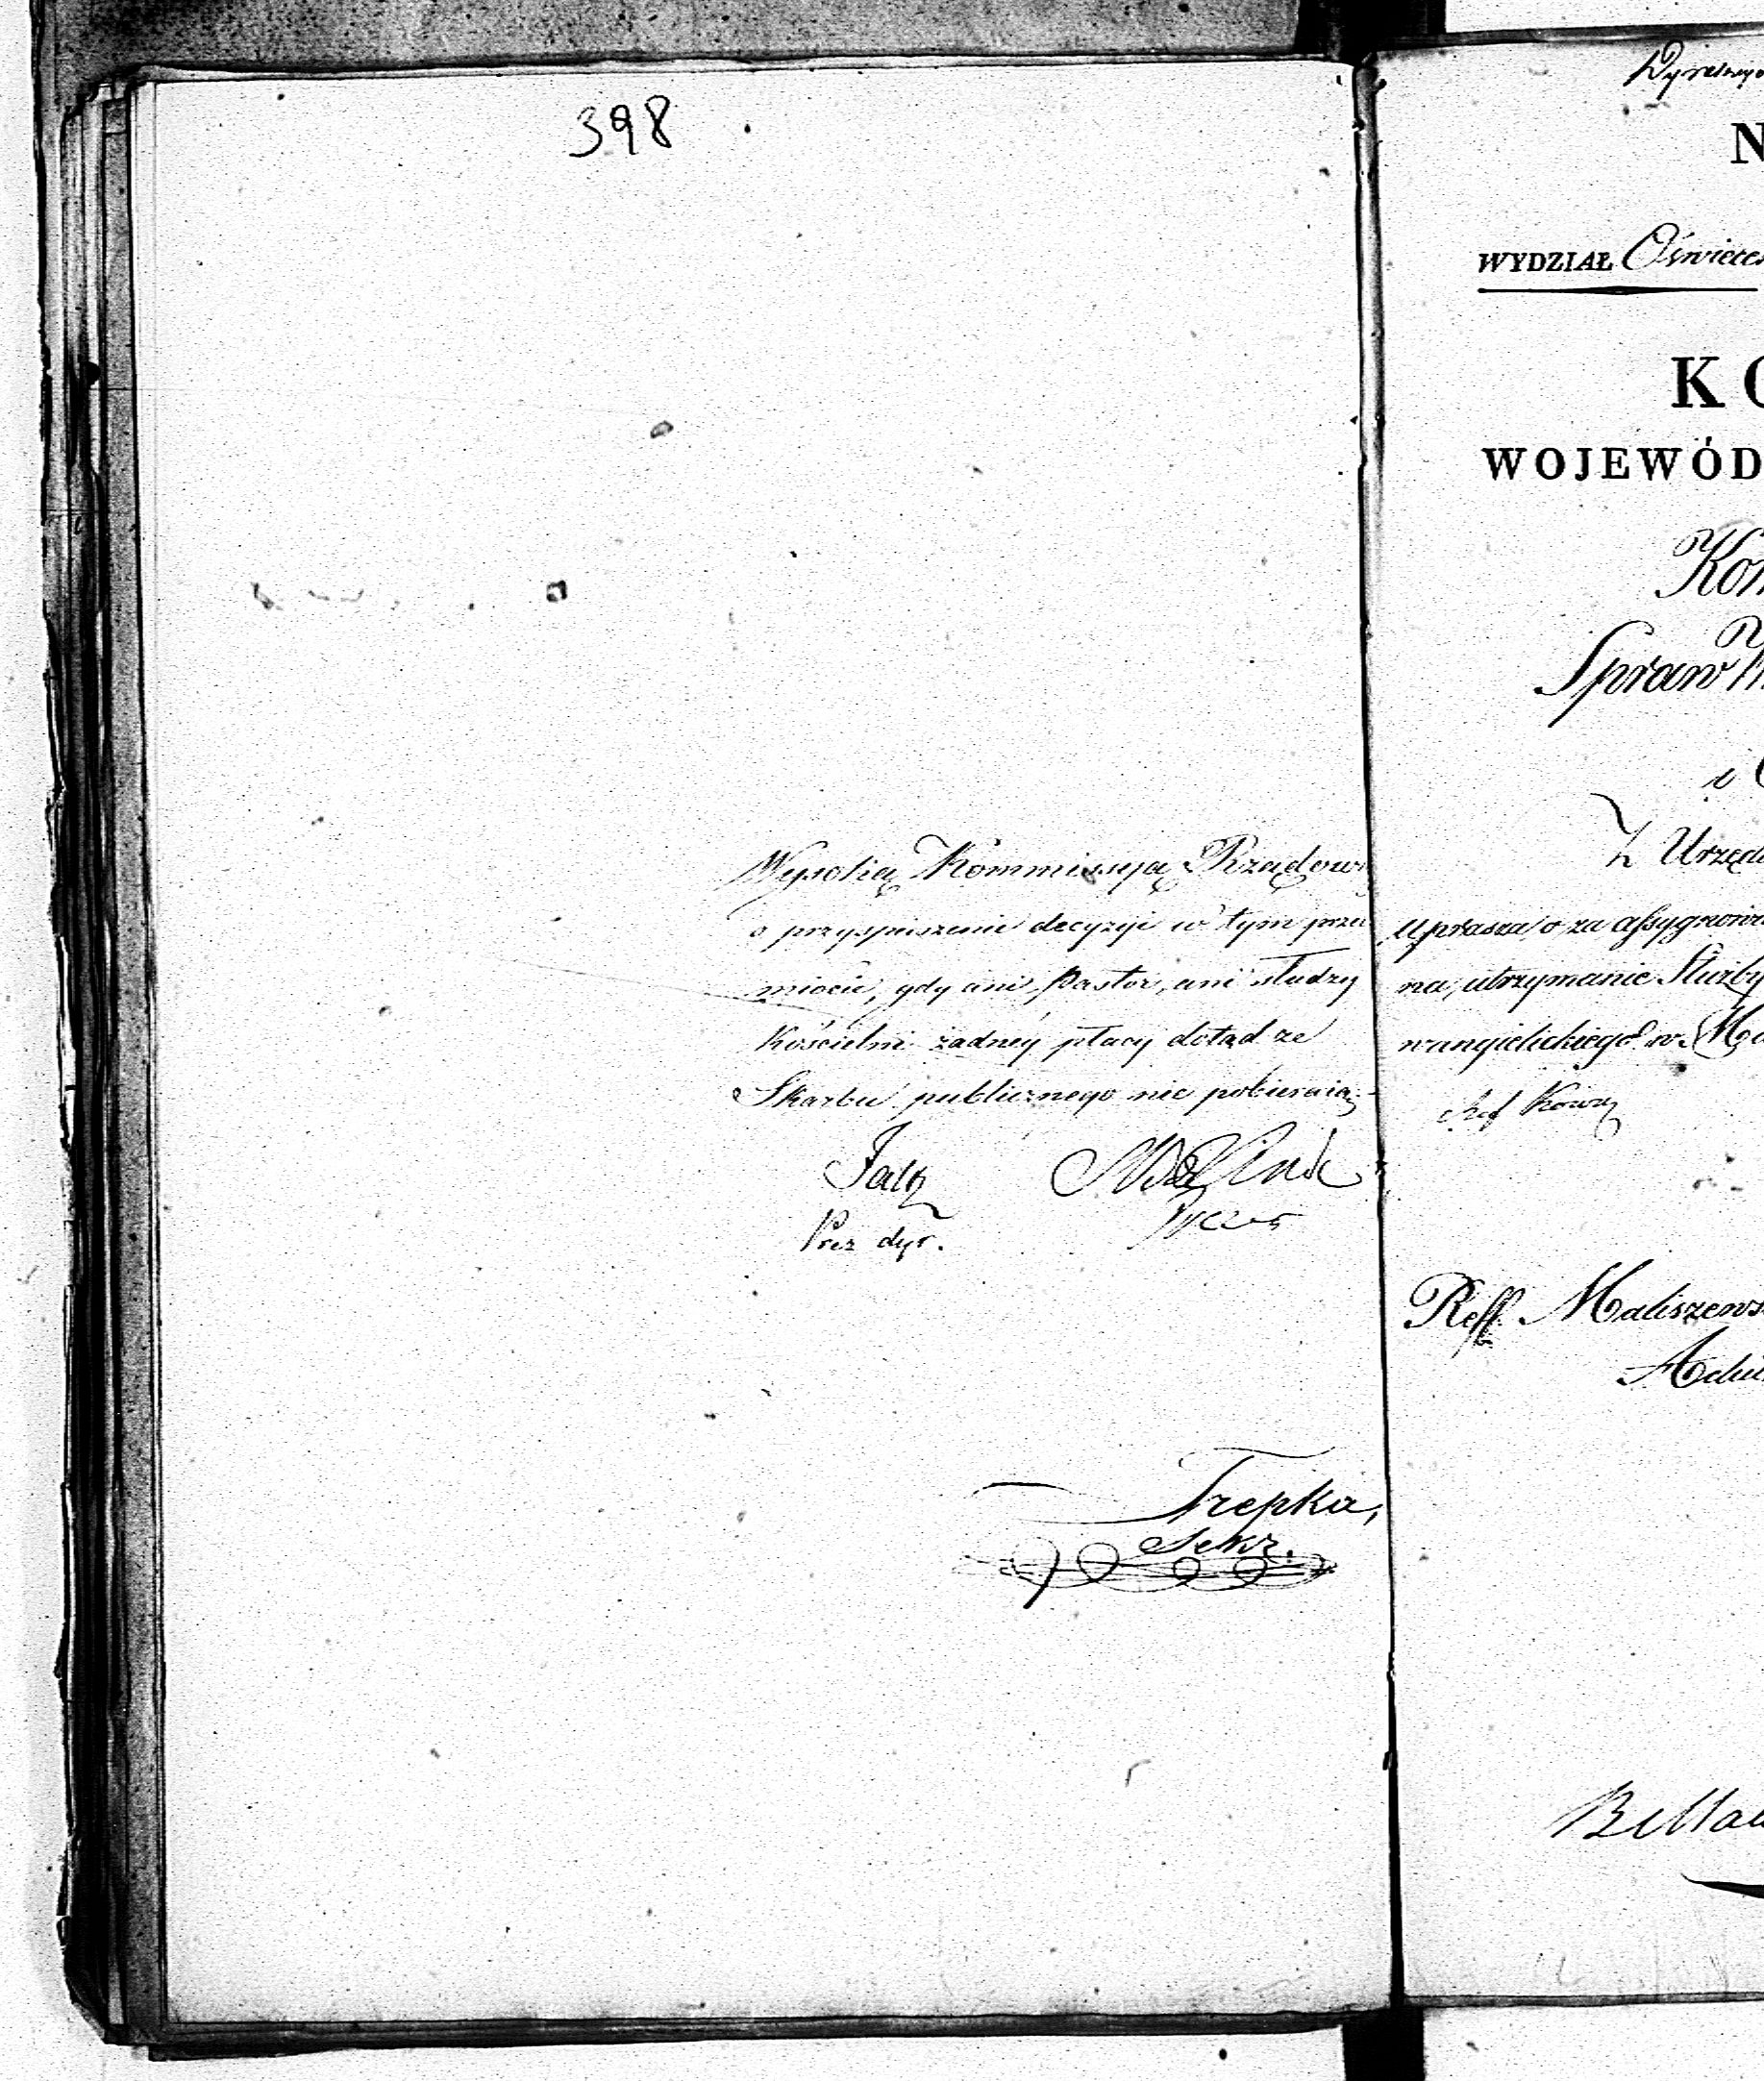 398
Wysoką Kommissyą Rządow
o przyspieszenie decyzyi w tym przed
miocie, gdy ani Pastor, ani słudzy
Kościelni żadney płacy dotąd ze
Skarbu publicznego nie pobieraią.
Prez dyr.
Trepka,
Sekr.
N
WYDZIAŁ Oświece
KO
WOJEWÓD
Kom
Spraw W
i O
Z Urzędu
uprasza o za assygnowa
na utrzymanie Służby
wangielickiego w Ma
Reff Maliszews